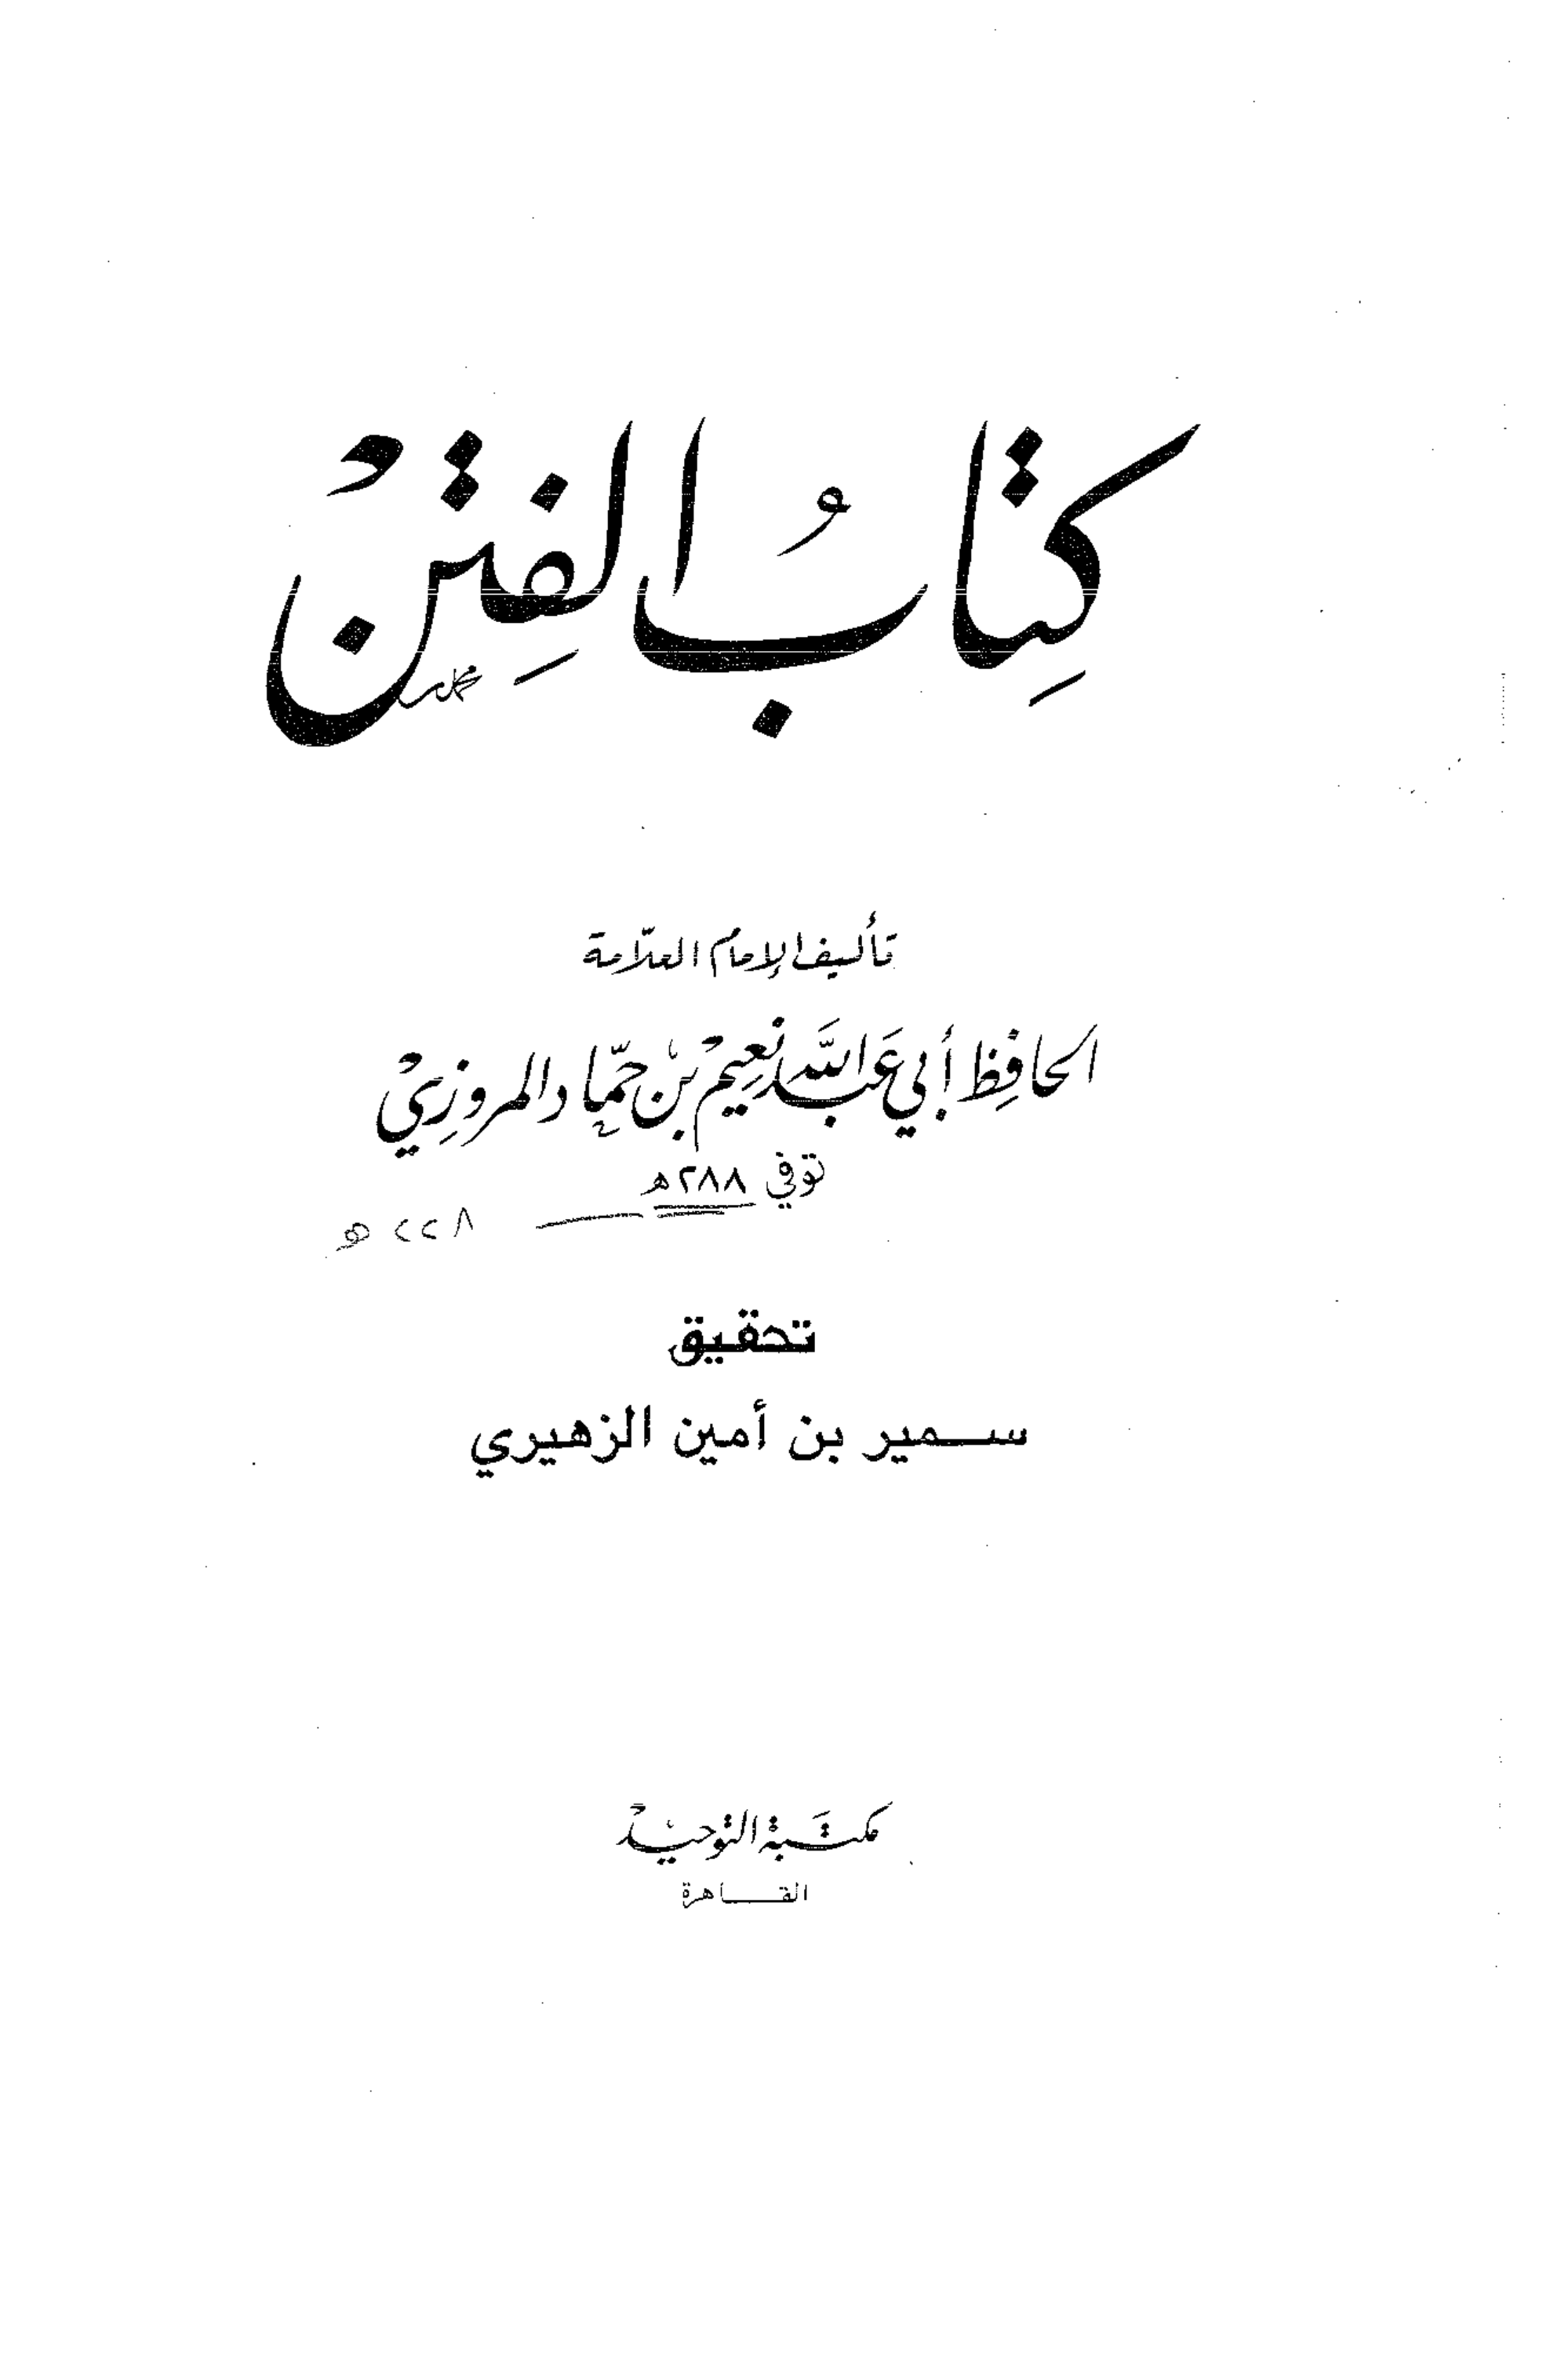 كِتَابُ الفِتَنْ
محمد
تأليف الإمام العلّامة
الحافِظ أبي عَبد اللَّه نعِيمْ بن حمّاد المروزِيْ
توفي ٢٨٨ هـ
٢٢٨ هـ
تحقيق
سمير بن أمين الزهيري
مكتَبة التوحيدْ
القاهرة